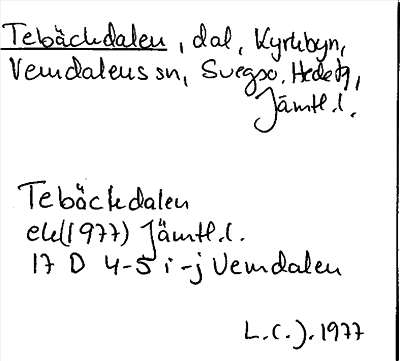 Tebäckdalen, dal, Kyrkbyn,
Vemdalens sn, Svegso. Hede tg,
Jämtl. l.
Tebäckdalen
ek(1977) Jämtl. l.
17 D 4-5 i-j Vemdalen
L.C.J. 1977